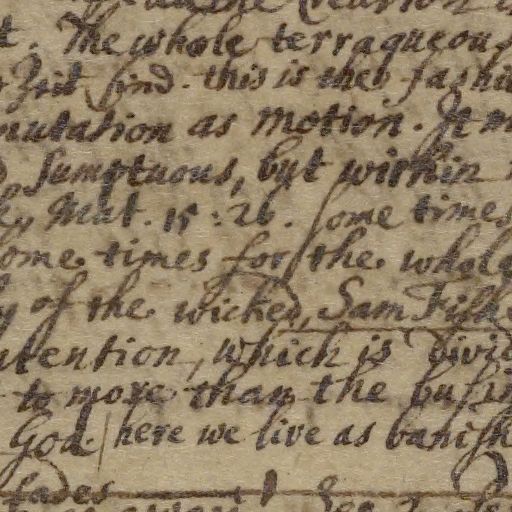 t. The whole terraqueou
find. this is the fashi
mutation as motion. It m
sumptuous, but within
Mat. 15:26. some times
ome times for the whole
y of the wicked, Sam Fish
ntention, which is divid
to more than the busin
God. here we live as banish
fades